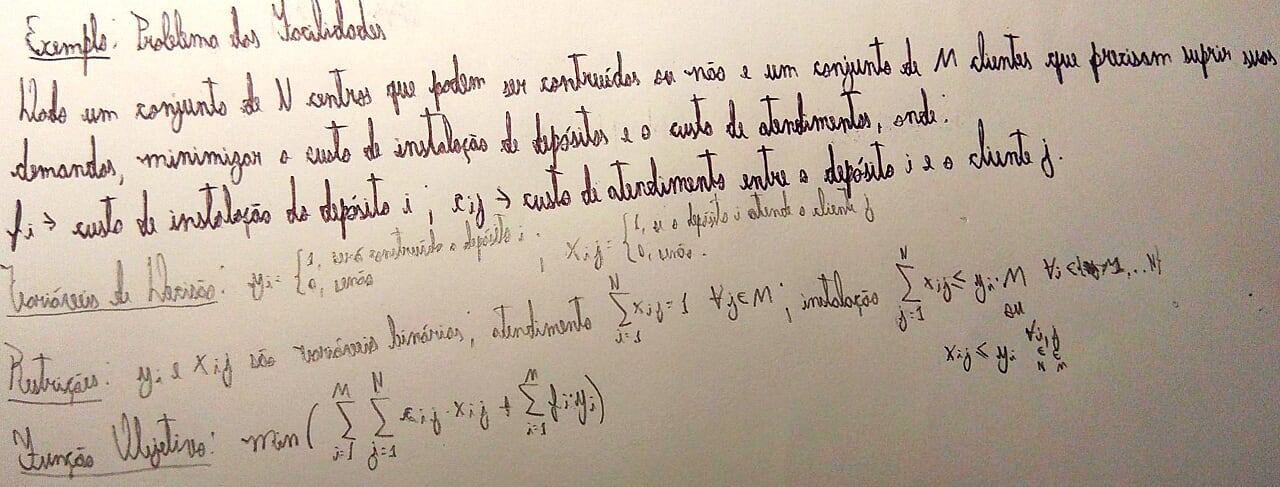 Exemplo: Problema das Facilidades
Dado um conjunto de N centros que podem ser contruídos ou não e um conjunto de M clientes que precisam suprir suas
demandas, minimizar o custo de instalação de depósitos e o custo de atendimentos, onde:
fi → custo de instalação do depósito i ; cij → custo de atendimento entre o depósito i e o cliente j.
Variáveis de Decisão: yi = { 1, será construído o depósito i. 0, senão ; xij = { 1, se o depósito i atende o cliente j 0, senão.
Restrições: yi e xij são variáveis binárias; atendimento ∑_{i=1}^{N} xij = 1 ∀j∈M ; instalação ∑_{j=1}^{N} xij ≤ yi·M ∀i ∈ 1,...N}
ou
xij ≤ yi ∀i,j ∈ ∈ N M
Função Objetivo: min( ∑_{i=1}^{M} ∑_{j=1}^{N} cij·xij + ∑_{i=1}^{M} fi·yi )